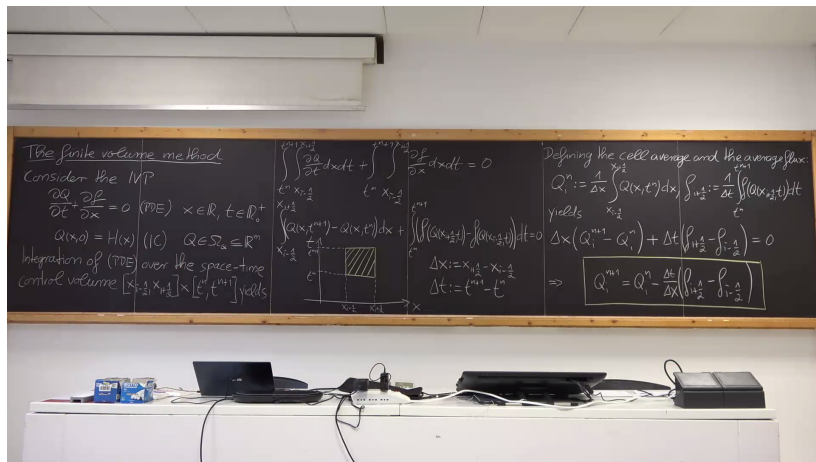 The finite volume method
Consider the IVP
∂Q/∂t + ∂f/∂x = 0 (PDE) x∈ℝ, t∈ℝ₀⁺
Q(x,0) = H(x) (IC) Q∈Ω_Q ⊆ ℝᵐ
Integration of (PDE) over the space-time
control volume [x_{i-1/2}, x_{i+1/2}]×[tⁿ, tⁿ⁺¹] yields
∫_{tⁿ}^{tⁿ⁺¹} ∫_{x_{i-1/2}}^{x_{i+1/2}} ∂Q/∂t dxdt + ∫_{tⁿ}^{tⁿ⁺¹} ∫_{x_{i-1/2}}^{x_{i+1/2}} ∂f/∂x dxdt = 0
∫_{x_{i-1/2}}^{x_{i+1/2}} (Q(x,tⁿ⁺¹) - Q(x,tⁿ))dx + ∫_{tⁿ}^{tⁿ⁺¹} (f(Q(x_{i+1/2},t)) - f(Q(x_{i-1/2},t)))dt = 0
t
tⁿ⁺¹
tⁿ
x_{i-1/2} x_{i+1/2} x
Δx := x_{i+1/2} - x_{i-1/2}
Δt := tⁿ⁺¹ - tⁿ
Defining the cell average and the average flux:
Q_iⁿ := 1/Δx ∫_{x_{i-1/2}}^{x_{i+1/2}} Q(x,tⁿ)dx, f_{i+1/2} := 1/Δt ∫_{tⁿ}^{tⁿ⁺¹} f(Q(x_{i+1/2},t))dt
yields
Δx(Q_iⁿ⁺¹ - Q_iⁿ) + Δt(f_{i+1/2} - f_{i-1/2}) = 0
⇒ Q_iⁿ⁺¹ = Q_iⁿ - Δt/Δx (f_{i+1/2} - f_{i-1/2})